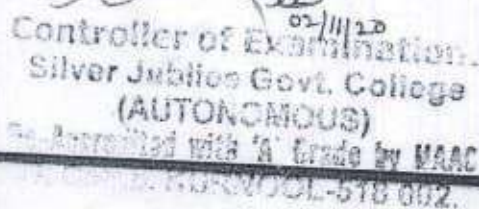 02/11/20
Controller of Examination.
Silver Jubilee Govt. College
(AUTONOMOUS)
Re-Accredited with 'A' Grade by NAAC
KURNOOL-518 002.